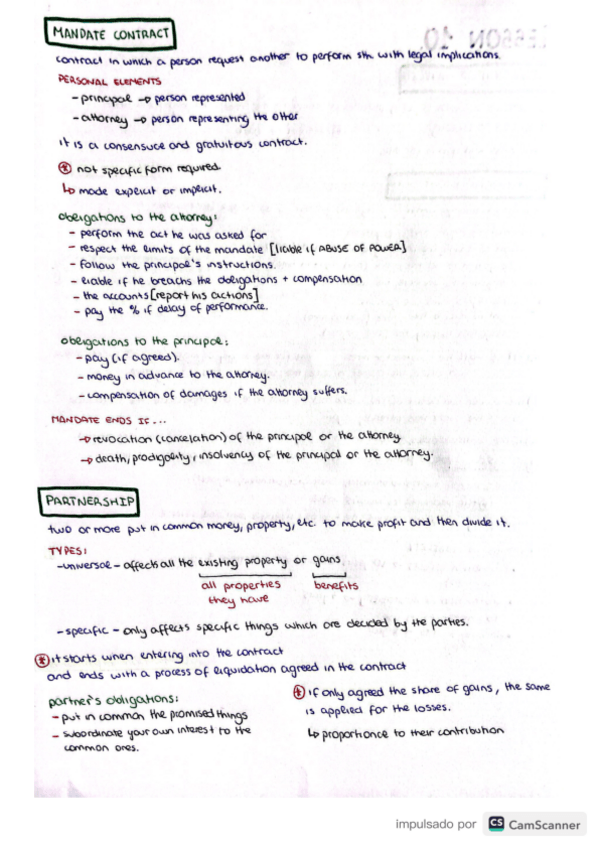 MANDATE CONTRACT
LESSON 20.
contract in which a person request another to perform sth. with legal implications.
PERSONAL ELEMENTS
- principal → person represented
- attorney → person representing the other
it is a consensuce and gratuitous contract.
* not specific form required.
↳ made explicit or implicit.
obligations to the attorney:
- perform the act he was asked for
- respect the limits of the mandate [liable if ABUSE OF POWER]
- follow the principal's instructions.
- liable if he breachs the obligations + compensation
- the accounts [report his actions]
- pay the % if delay of performance.
obligations to the principal:
- pay (if agreed).
- money in advance to the attorney.
- compensation of damages if the attorney suffers.
MANDATE ENDS IF...
→ revocation (cancelation) of the principal or the attorney
→ death, prodigality, insolvency of the principal or the attorney.
PARTNERSHIP
two or more put in common money, property, etc. to make profit and then divide it.
TYPES:
- universal - affects all the existing property or gains
all properties they have
benefits
- specific - only affects specific things which are decided by the parties.
* it starts when entering into the contract
and ends with a process of liquidation agreed in the contract
partner's obligations:
- put in common the promised things
- subordinate your own interest to the
common ones.
* if only agreed the share of gains, the same
is applied for the losses.
↳ proportionce to their contribution
impulsado por CS CamScanner